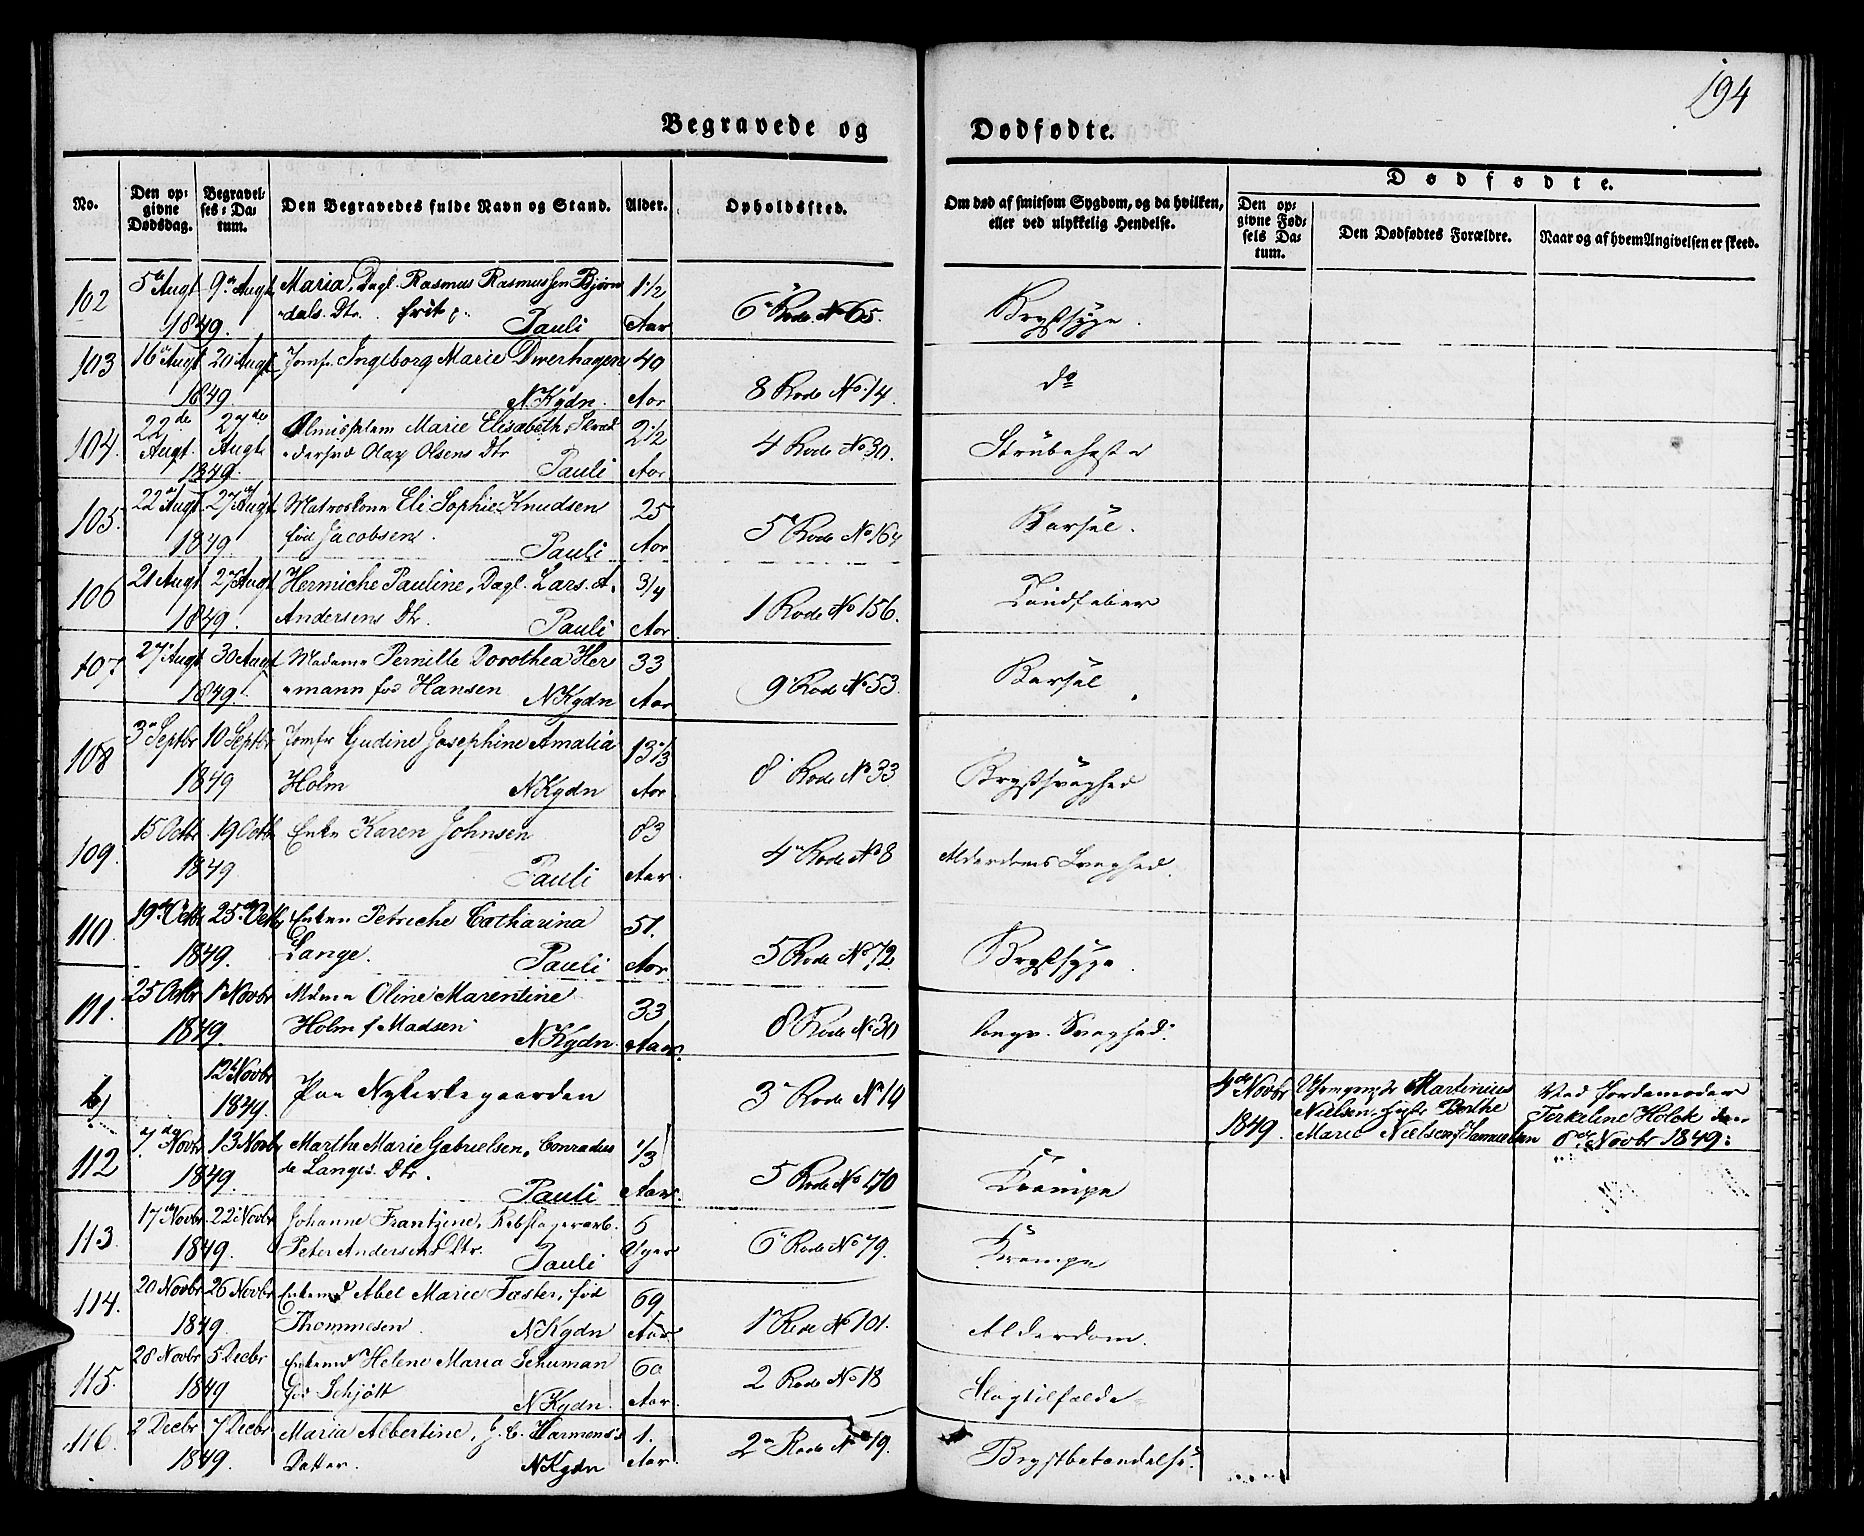 194
Begravede og Dødfødte.
No.
Den opgivne Dødsdag.
Begravelses-Datum.
Den Begravedes fulde Navn og Stand.
Alder.
Opholdssted.
Om død af smitsom Sygdom, og da hvilken, eller ved ulykkelig Hendelse.
Dødfødte.
Den opgivne Fødsels Datum.
Den Dødfødtes Forældre.
Naar og af hvem Angivelsen er skeed.
102 5te Augt 9de Augt Maria, Dagl. Rasmus Rasmussen Bjørn 1 1/2
1849. dals. Dtr. frit Pauli Aar 6 Rode No 65. Brystsyge.
103 16 Augt 20 Augt Jomfr. Ingeborg Marie Dwerhagen 40
1849. NKgdn. Aar 8 Rode No. 14. do
104. 22de Augt. 27de Augt. Almisselem Marie Elisabeth, Skræd 2 1/2
1849. dersvd Olay Olsens Dtr Pauli Aar 4 Rode No 30. Strubehoste
105. 22 Augt 27 Augt Matroskone Eli Sophie Knudsen 25
1849. fød Jacobsen. Pauli Aar 5 Rode No 164 Barsel.
106 21 Augt 27 Augt Hermiche Pauline, Dagl. Lars. A. 3/4
1849. Andersens Dtr. Pauli Aar. 1 Rode No 156. Tandfeber
107. 27 Augt 30 Augt Madame Pernille Dorothea Her 33
1849. mann fød Hansen NKgdn Aar. 9 Rode No 53. Barsel
108 3 Septbr 10 Septbr Jomfr Gudine Josephine Amalia 13 1/3
1849 Holm NKgdn Aar 8 Rode No 33 Brystsvaghed
109. 15 Octbr 19 Octbr Enke Karen Johnsen 83
1849 Pauli Aar. 4 Rode No 8 Alderdoms Svaghed.
110. 19de Octbr 25de Octbr Enken Petriche Catharina 51.
1849. Lange. Pauli Aar 5 Rode No 72. Brystsyge.
111. 25 Octbr 1 Novbr Mdme Oline Marentine 33
1849. Holm f Madsen NKgdn. Aar. 8 Rode No 30 Svaghed.
12 Novbr
1849. Paa Nykirkegaarden 3 Rode No 19
4de Novbr 1849.
Martinius
Nielsen, Berthe
Marie Nielsen f Samuelsen
Ved Jordemoder
Terkeline Holck den
8de Novbr 1849.
112 7de Novbr 13 Novbr Marthe Marie Gabrielsen, Conradus 1/3
1849. de Langes. Dtr. Pauli Aar. 5 Rode No 170 Krampe
113. 17de Novbr 22 Novbr Johanne Frantzine, Rebslagerarb. 5
1849. Peter Andersens Dtr. Pauli Uger 6 Rode No 79. Krampe
114. 20 Novbr 26 Novbr Enkemd Abel Marie Faster, fød 69
1849. Thommesen. NKgdn Aar. 1 Rode No 101. Alderdom.
115. 28 Novbr 5 Decbr Enkemd Helene Maria Schuman 60
1849 fød Schjøtt NKgdn. Aar. 2 Rode No 18 Slagtilfælde
116. 2 Decbr 7 Decbr Maria Albertine, J. C. Harmens's 1.
1849. Datter. NKgdn Aar. 2 Rode No 19. Brystbetændelse.